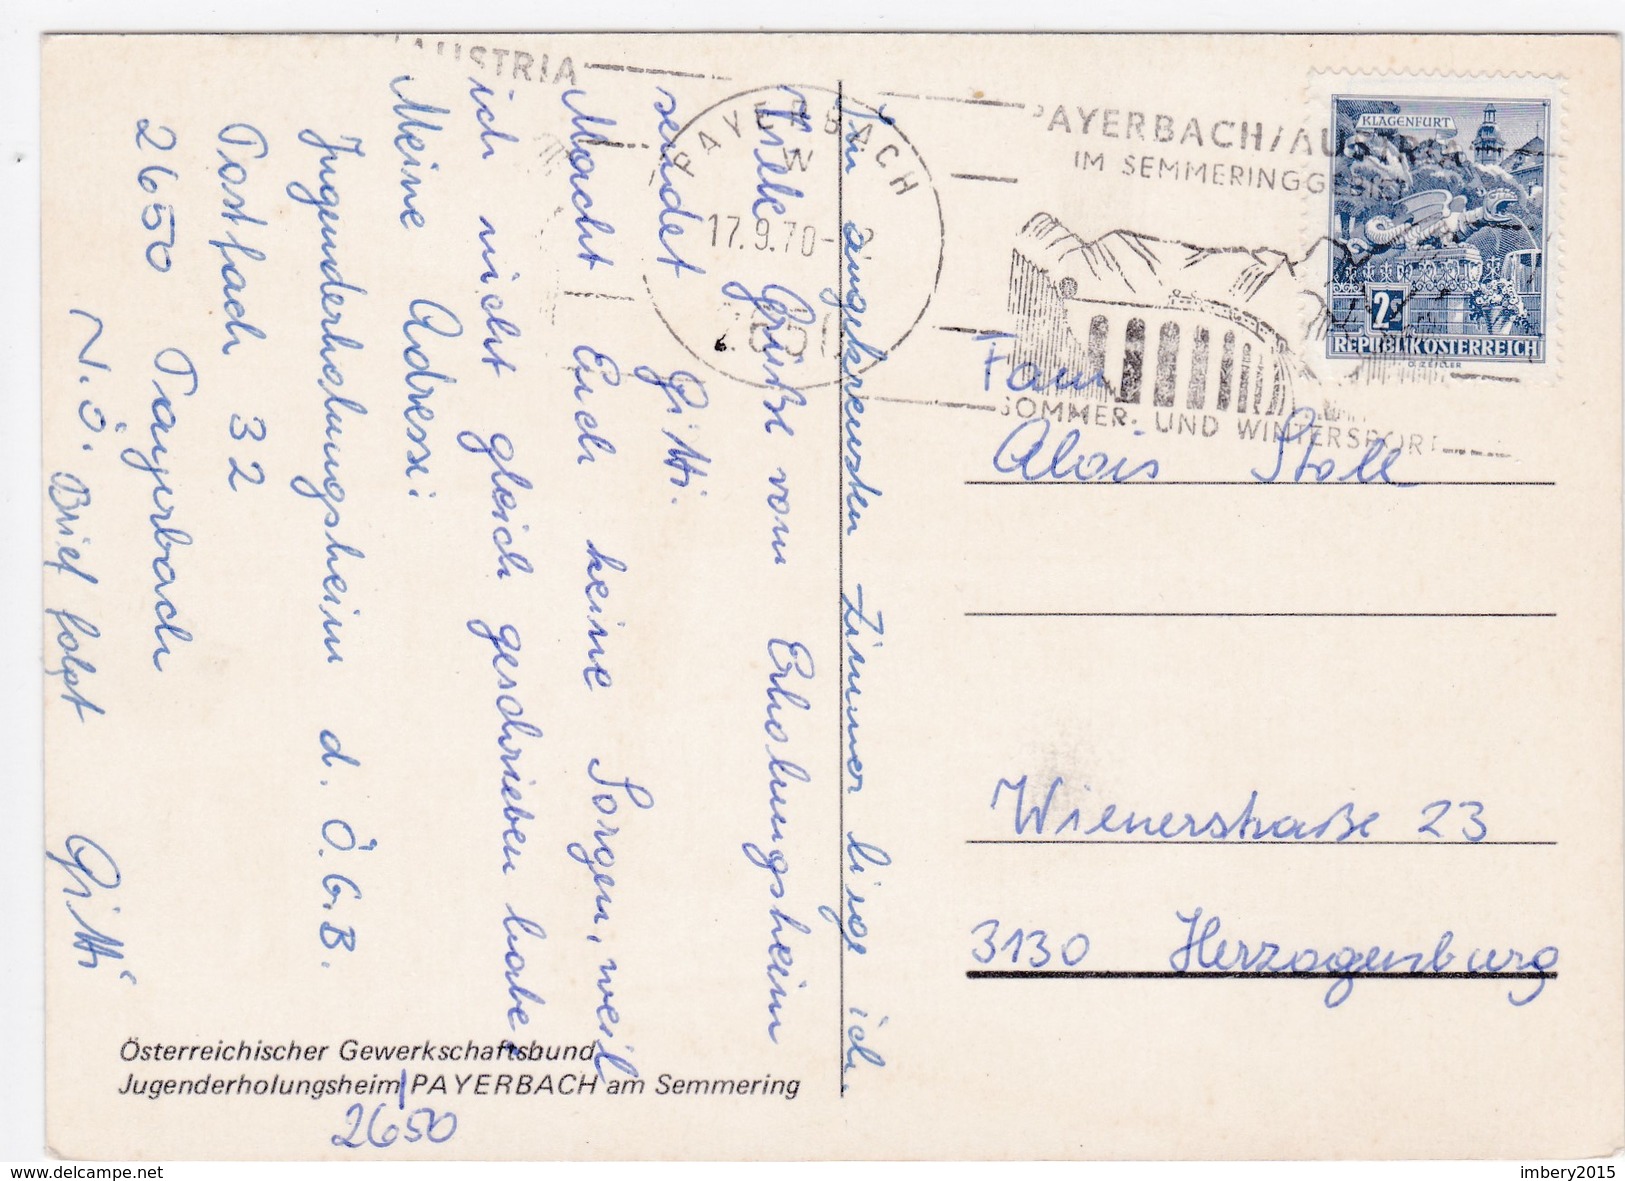 AUSTRIA
PAYERBACH
W
17.9.70-
2650
PAYERBACH/AUSTRIA
IM SEMMERINGGEBIET
SOMMER- UND WINTERSPORT
KLAGENFURT
2S
REPUBLIK ÖSTERREICH
O. ZEILLER
Im angekreutzten Zimmer liege ich.
Viele Grüße vom Erholungsheim
sendet Gitti.
Macht Euch keine Sorgen, weil
ich nicht gleich geschrieben habe.
Meine Adresse:
Jugenderholungsheim d. Ö.G.B.
Postfach 32
2650 Payerbach
N.Ö. Brief folgt Gitti
Fam
Alois Stoll
Wienerstraße 23
3130 Herzogenburg
Österreichischer Gewerkschaftsbund
Jugenderholungsheim PAYERBACH am Semmering
2650
delcampe.net
imbery2015